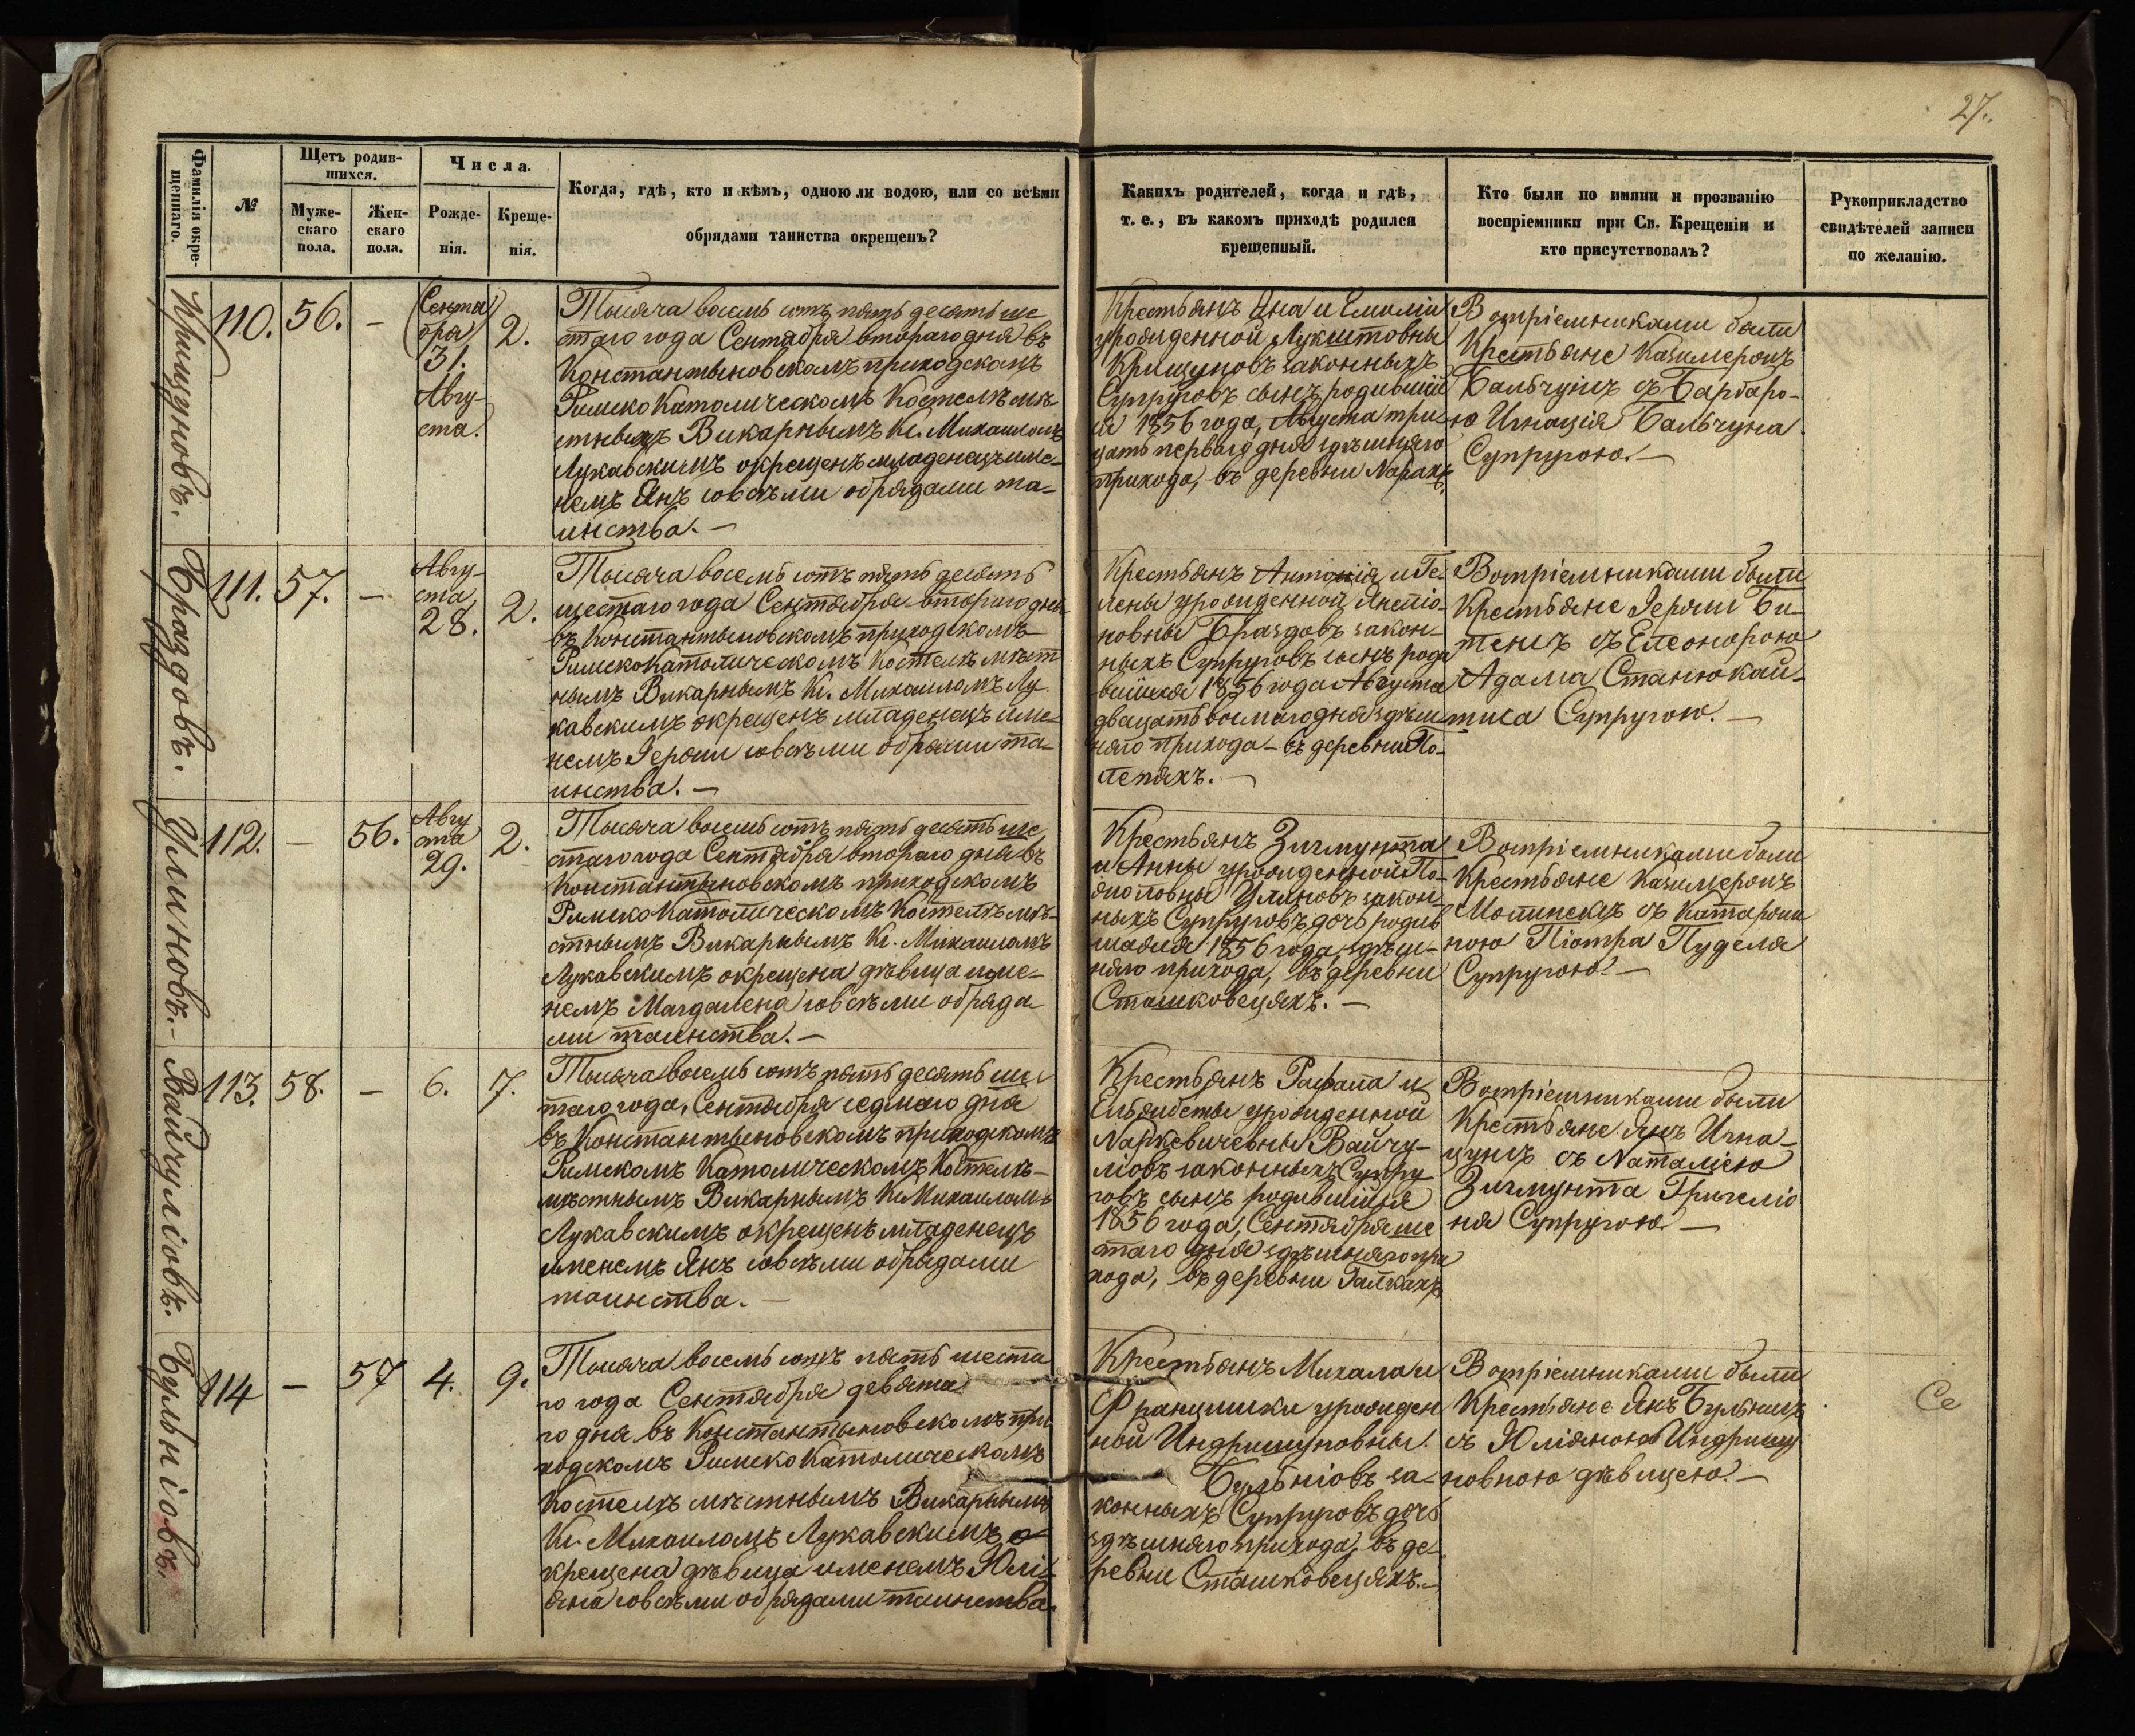 27.
Фамилія окре-
щеннаго.
№
Щетъ родив-
шихся.
Муже-
скаго
пола.
Жен-
скаго
пола.
Числа.
Рожде-
нія.
Креще-
нія.
Когда, гдѣ, кто и кѣмъ, одною ли водою, или со всѣми
обрядами таинства окрещенъ?
Какихъ родителей, когда и гдѣ,
т. е., въ какомъ приходѣ родился
крещенный.
Кто были по имяни и прозванію
воспріемники при Св. Крещеніи и
кто присутствовалъ?
Рукоприкладство
свидѣтелей записи
по желанію.
Крищуновъ.
110.
56.
—
(Сентя
бря)
31.
Авгу-
ста.
2.
Тысяча восемь сотъ пять десять ше
стаго года Сентября втораго дня въ
Константыновскомъ приходскомъ
Римско Католическомъ Костелѣ мѣ-
стнымъ Викарнымъ Кс. Михаиломъ
Лукавскимъ окрещенъ младенецъ име-
немъ Янъ совсѣми обрядами та-
инства. —
Крестьянъ Яна и Емиліи
урожденной Лукштовны
Крищуновъ законныхъ
Супруговъ сынъ родившій
ся 1856 года, Августа три-
цать перваго дня здѣшняго
прихода, въ деревни Нарахъ.
Воспріемниками были
Крестьяне Казимерош
Бальчунъ съ Барбаро-
ю Игнація Бальчуна
Супругою. —
Браздовъ.
111.
57.
—
Авгу-
ста,
28.
2.
Тысяча восемь сотъ пять десять
шестаго года Сентября втораго дня
въ Константыновскомъ приходскомъ
Римско Католическомъ Костелѣ мѣст
нымъ Викарнымъ Кс. Михаиломъ Лу
кавскимъ окрещенъ младенецъ име-
немъ Іероним совсѣми обрядами та-
инства. —
Крестьянъ Антонія и Ге-
лены урожденной
новны Браздовъ закон-
ныхъ Супруговъ сынъ роди
вшійся 1856 года Августа
двацать восмаго дня здѣш
няго прихода - въ деревни По-
лепяхъ. —
Воспріемниками были
Крестьяне Іероним Би-
тенъ съ Елеонорою
Адама Станюкай-
тиса Супругою. —
Улиновъ. —
112.
—
56.
Авгу
ста
29.
2.
Тысяча восемь сотъ пять десять ше
стаго года Сентября втораго дня въ
Константыновскомъ приходскомъ
Римско Католическомъ Костелѣ мѣ-
стнымъ Викарнымъ Кс. Михаиломъ
Лукавскимъ окрещена дѣвица име-
немъ Магдалена совсѣми обряда
ми таинства. —
Крестьянъ Зигмунта
и Анны урожденной По-
Улиновъ закон-
ныхъ Супруговъ дочь родив
шаяся 1856 года, здѣш-
няго прихода, въ деревни
Сташковецяхъ. —
Воспріемниками были
Крестьяне Казимерош
Молинскъ съ Катарժи
ною Піотра Пуделя
Супругою. —
Вайчуліовъ.
113.
58.
—
6.
7.
Тысяча восемь сотъ пять десять шес
таго года, Сентября седмаго дня
въ Константыновскомъ приходскомъ
Римскомъ Католическомъ Костелѣ -
мѣстнымъ Викарнымъ Кс. Михаиломъ
Лукавскимъ окрещенъ младенецъ
именемъ Янъ совсѣми обрядами
таинства. —
Крестьянъ Рафала и
Ельжбеты урожденной
Наркевичевны Вайчу-
ліовъ законныхъ Супру
говъ сынъ родившійся
1856 года, Сентября ше
таго дня здѣшняго при
хода, въ деревни Гайкахъ
Воспріемниками были
Крестьяне Янъ Игна-
цунъ съ Наталіею
Зигмунта Григеліо
ня Супругою. —
Бульніовъ.
114
—
57
4.
9.
Тысяча восемь сотъ пять шеста
го года Сентября девята
го дня въ Константыновскомъ при
ходскомъ Римско Католическомъ
Костелѣ мѣстнымъ Викарнымъ
Кс. Михаиломъ Лукавскимъ о-
крещена дѣвица именемъ Юлі-
яна совсѣми обрядами таинства.
Крестьянъ Михала и
Францишки урожден
ной Индришуновны.
Бульніовъ за-
конныхъ Супруговъ дочь
здѣшняго прихода, въ де-
ревни Сташковецяхъ. -
Воспріемниками были
Крестьяне Янъ Бульнисъ
съ Юліяною Индришу
новною дѣвицею. —
Се